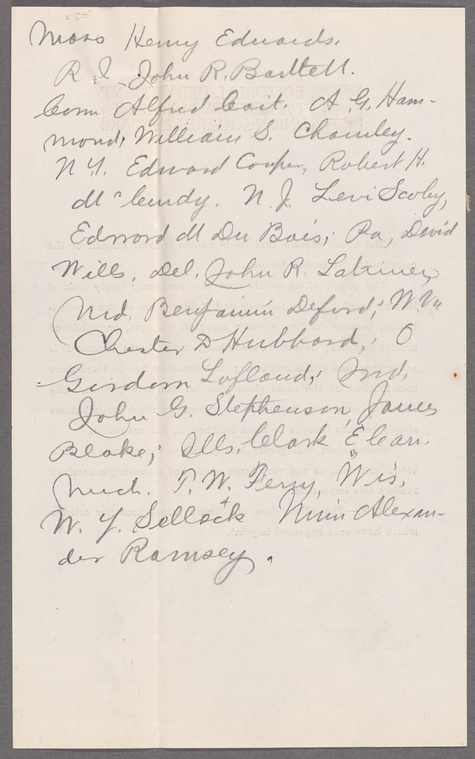 Mass Henry Edwards.
R. I. John R. Bartlett.
Conn Alfred Coit. A. G. Ham-
mond, William S. Charnley.
N Y. Edward Cooper, Robert H.
McCurdy. N. J. Levi Scoby,
Edward M Du Bois; Pa, David
Wills, Del. John R. Latimer,
Md. Benjamin Deford; W. Va
Chester D Hubbard; O
Gordon Lofland; Ind.
John G. Stephenson, James
Blake; Ills. Clark E Carr.
Mich. T. W. Ferry, Wis.
W. Y. Selleck Minn Alexan-
der Ramsey.